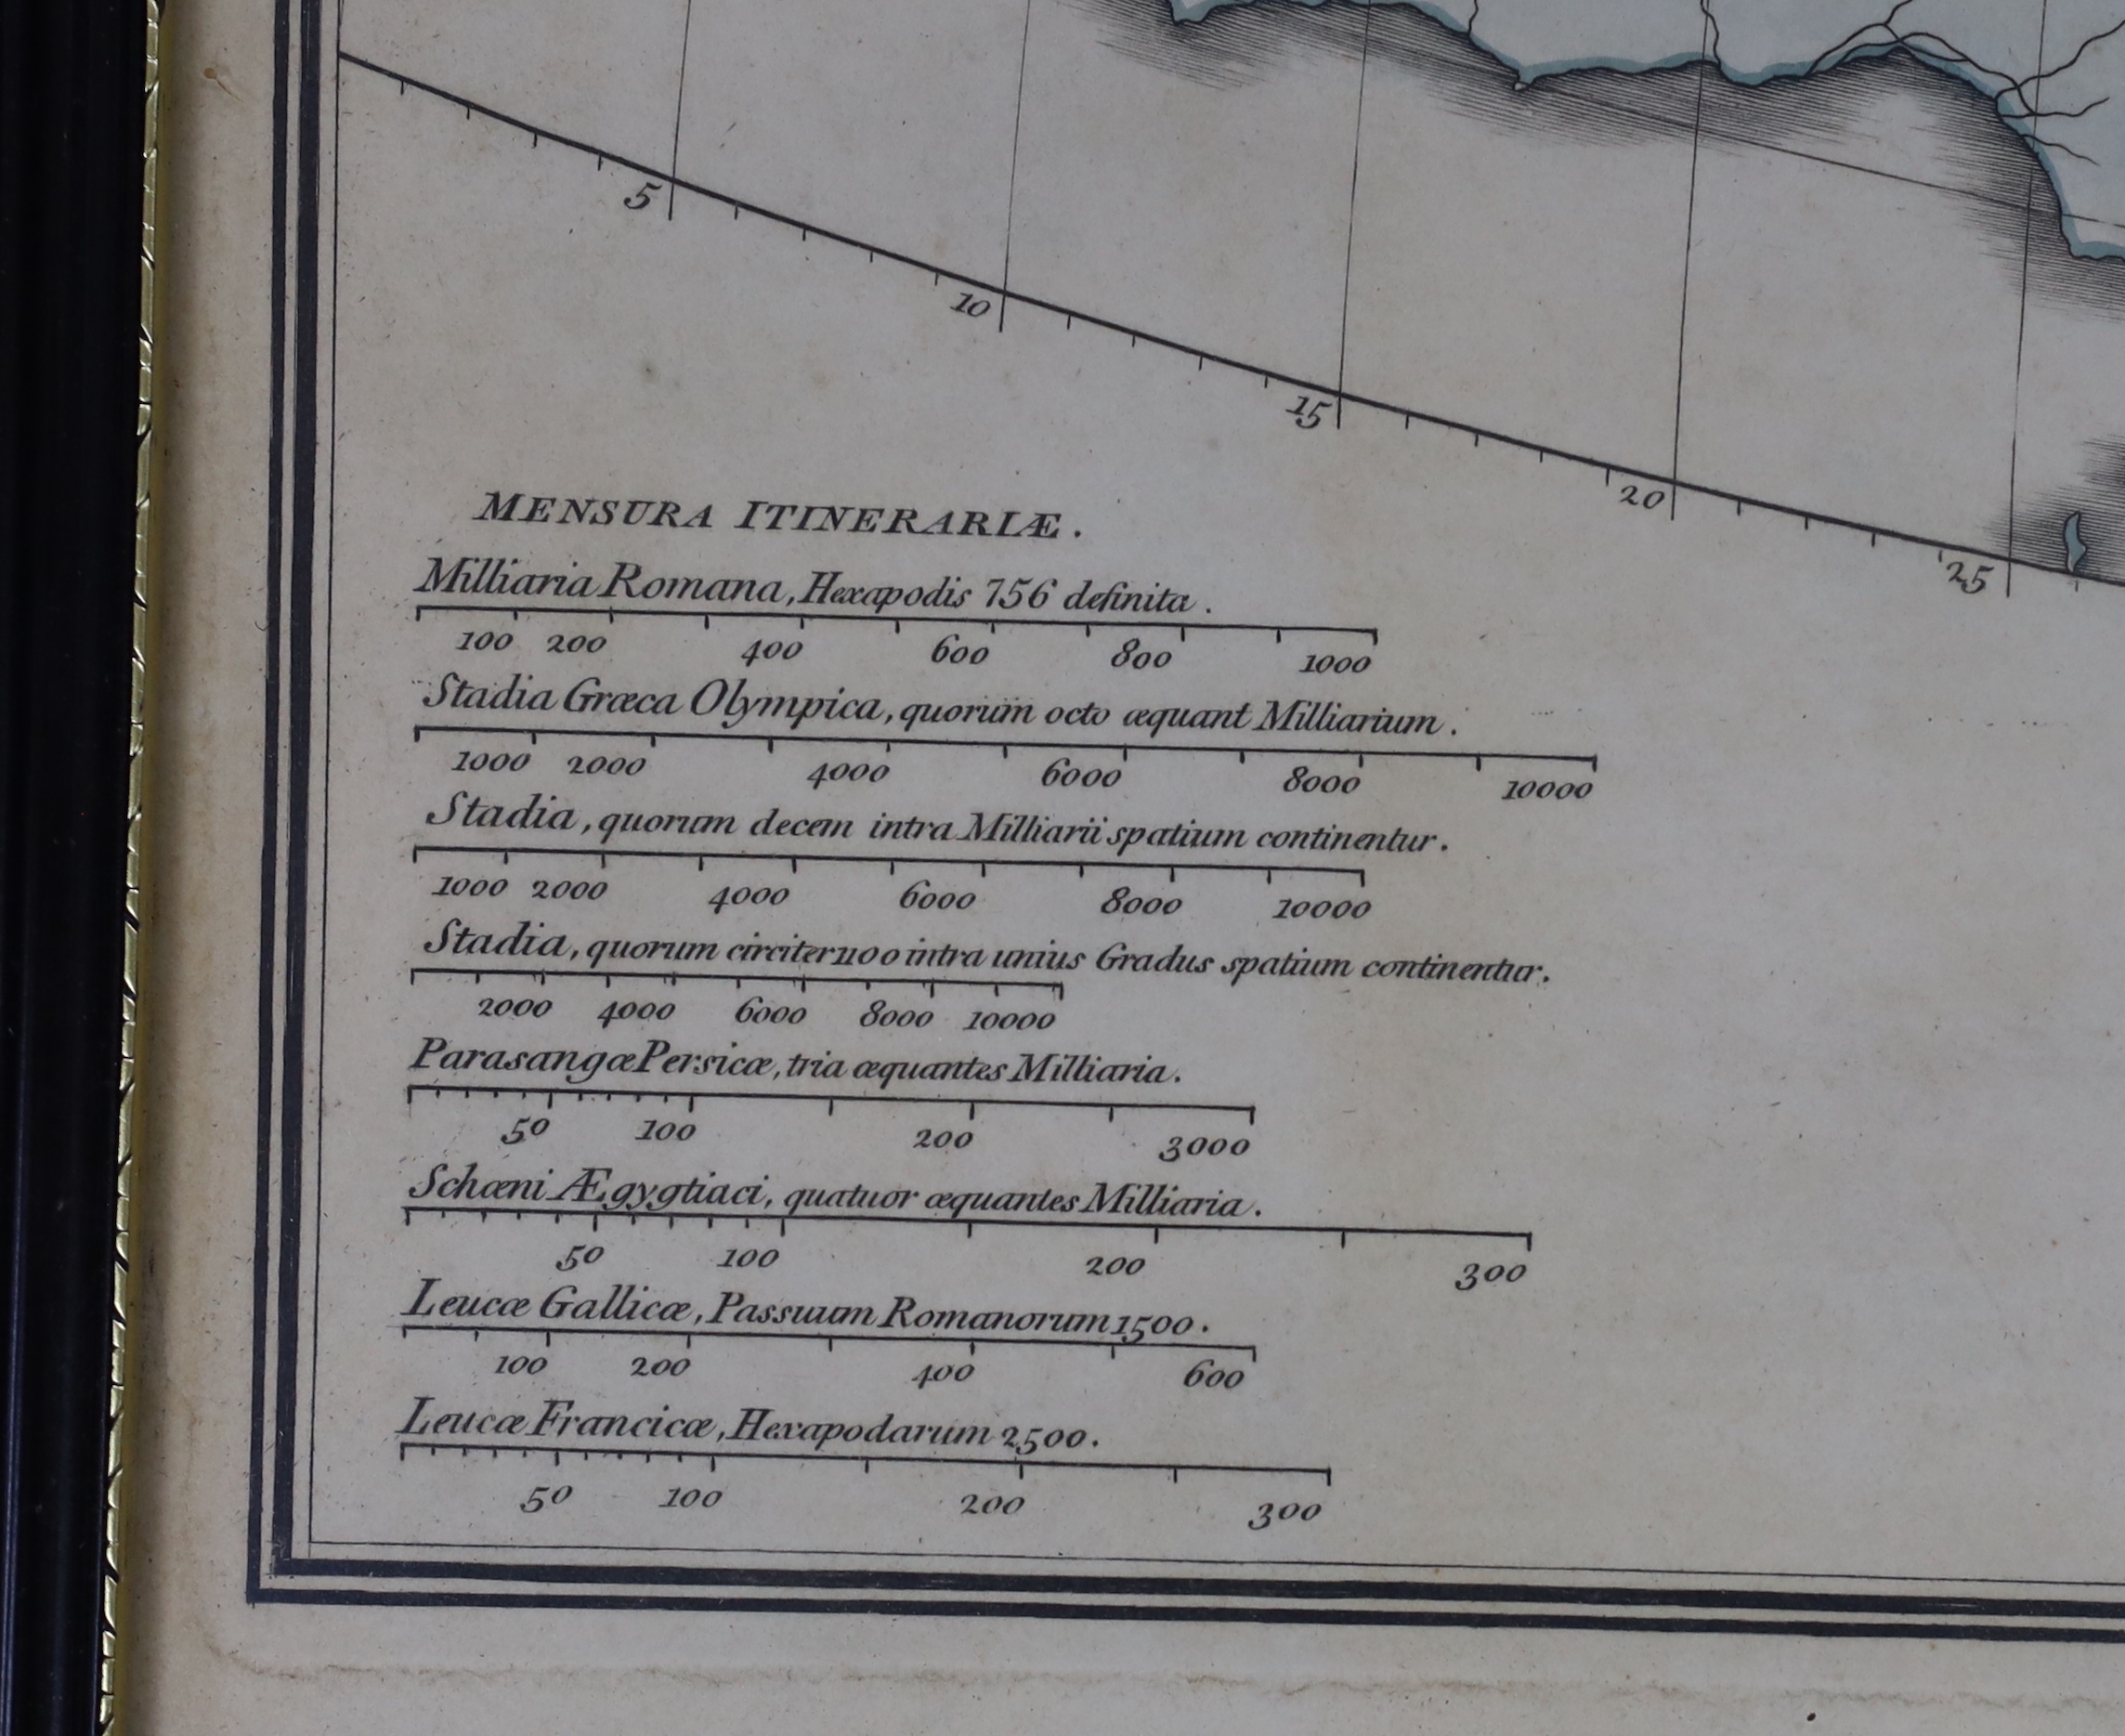 5
10
15
20
25
MENSURA ITINERARIÆ.
Milliaria Romana, Hexapodis 756 definita.
100 200 400 600 800 1000
Stadia Græca Olympica, quorum octo æquant Milliarium.
1000 2000 4000 6000 8000 10000
Stadia, quorum decem intra Milliarii spatium continentur.
1000 2000 4000 6000 8000 10000
Stadia, quorum circiter 1100 intra unius Gradus spatium continentur.
2000 4000 6000 8000 10000
Parasangæ Persicæ, tria æquantes Milliaria.
50 100 200 3000
Schœni Ægygtiaci, quatuor æquantes Milliaria.
50 100 200 300
Leucæ Gallicæ, Passuum Romanorum 1500.
100 200 400 600
Leucæ Francicæ, Hexapodarum 2500.
50 100 200 300